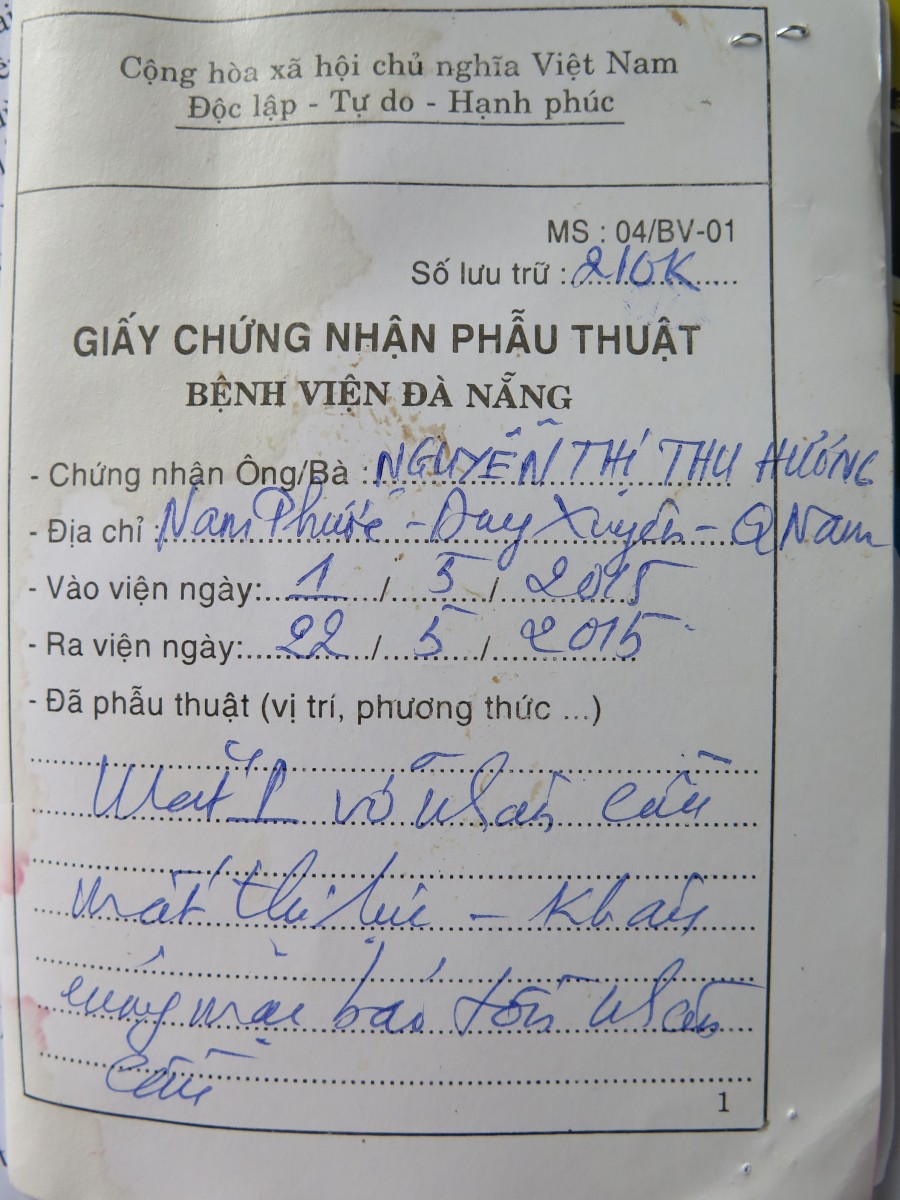 Cộng hòa xã hội chủ nghĩa Việt Nam
Độc lập - Tự do - Hạnh phúc
MS : 04/BV-01
Số lưu trữ : 210K
GIẤY CHỨNG NHẬN PHẪU THUẬT
BỆNH VIỆN ĐÀ NẴNG
- Chứng nhận Ông/Bà : NGUYỄN THỊ THU HƯƠNG
- Địa chỉ : Nam Phước - Duy Xuyên - Q Nam
- Vào viện ngày: 1 / 5 / 2015
- Ra viện ngày: 22 / 5 / 2015
- Đã phẫu thuật (vị trí, phương thức ...)
Mắt vỡ nhãn cầu
mất thị lực - Khâu
củng mạc bảo tồn nhãn
cầu
1